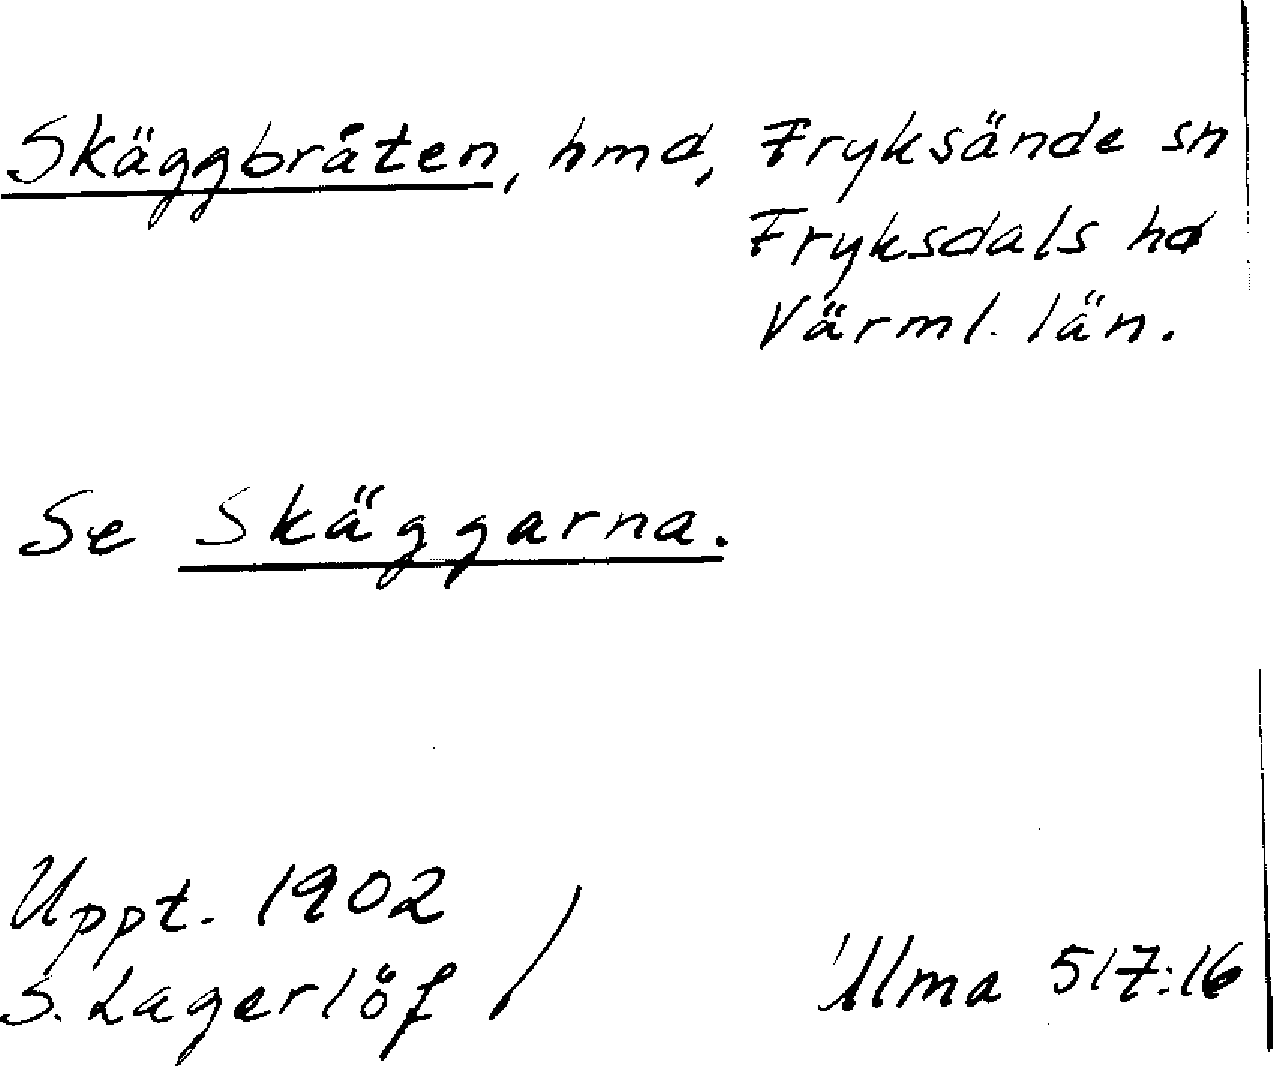 Skäggbråten, hmd, Fryksände sn
Fryksdals hd
Värml. län.
Se Skäggarna.
Uppt. 1902
S. Lagerlöf /
Ulma 517:16